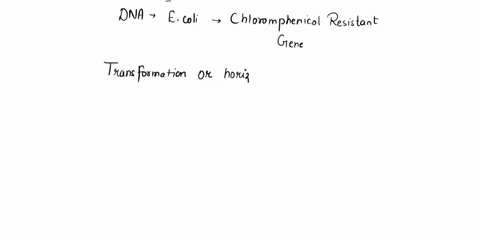 DNA → E.coli → Chloromphenicol Resistant
Gene
Transformation or horiz